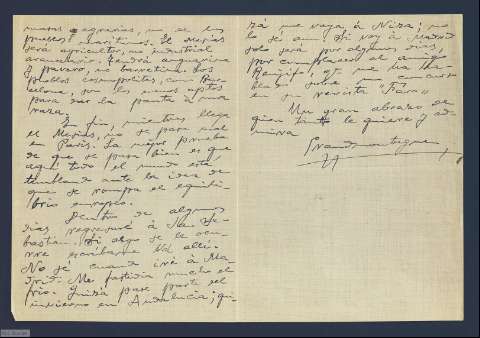 masas agrarias, no es los
pueblos marítimos. El Mesías
será agricultor, no industrial
arancelario. Tendrá anguarina
y pavero, no barretina. Los
pueblos cosmopolitas, como Bar-
celona, son los menos aptos
para dar la pauta a una
raza.
En fin, mientras llega
el Mesías, no se pasa mal
en París. La mejor prueba
de que se pasa bien es que
aquí todo el mundo está
temblando ante la idea de
que se rompa el equili-
brio europeo.
Dentro de algunos
días regresaré à San Se-
bastián. Si algo se le ocu-
rre escríbame Vd allí.
No sé cuando iré à Ma-
drid. Me fastidia mucho el
frío. Quizá pase parte del
invierno en Andalucía; qui-
zá me vaya à Niza; no
lo sé aun. Si voy à Madrid
solo será por algunos días,
por complacer al amigo
Rengifo, qe me ha ha-
blado sobre un concurso
en su revista "Faro"
Un gran abrazo de
quien le quiere y ad-
mira
Grandmontagne